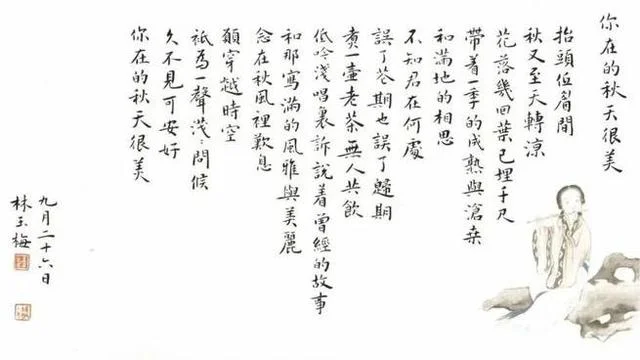 你在的秋天很美
抬頭低眉間
秋又至天轉涼
花落幾回葉已埋千尺
帶着一季的成熟與滄桑
和滿地的相思
不知君在何處
誤了花期也誤了歸期
煮一壺老茶無人共飲
低吟淺唱裏訴說着曾經的故事
和那寫滿的風雅與美麗
念在秋風裡歎息
願穿越時空
衹為一聲淺淺問候
久不見可安好
你在的秋天很美
九月二十六日
林玉梅